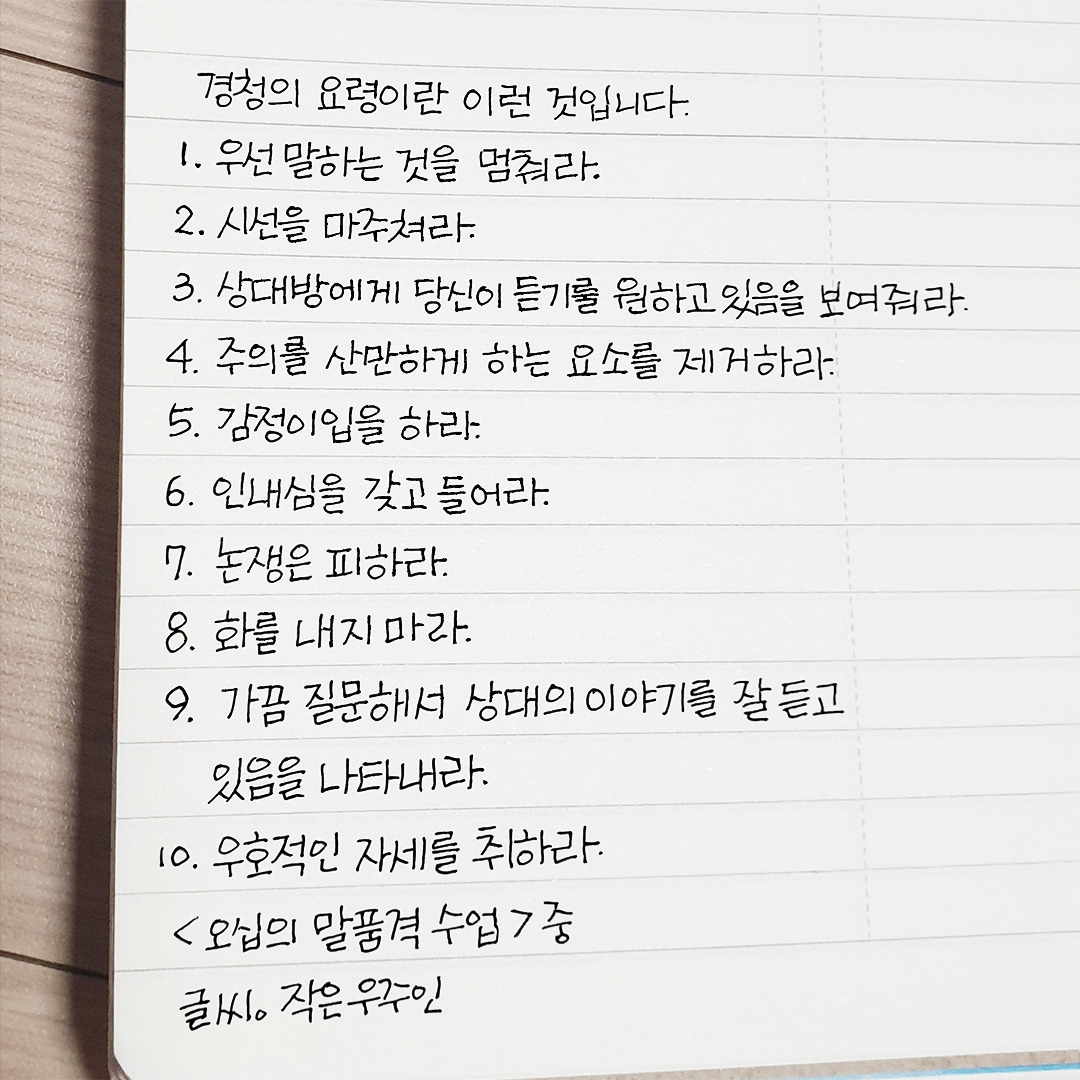 경청의 요령이란 이런 것입니다.
1. 우선 말하는 것을 멈춰라.
2. 시선을 마주쳐라.
3. 상대방에게 당신이 듣기를 원하고 있음을 보여줘라.
4. 주의를 산만하게 하는 요소를 제거하라.
5. 감정이입을 하라.
6. 인내심을 갖고 들어라.
7. 논쟁은 피하라.
8. 화를 내지 마라.
9. 가끔 질문해서 상대의 이야기를 잘 듣고
있음을 나타내라.
10. 우호적인 자세를 취하라.
<오십의 말품격 수업> 중
글씨。 작은우주인